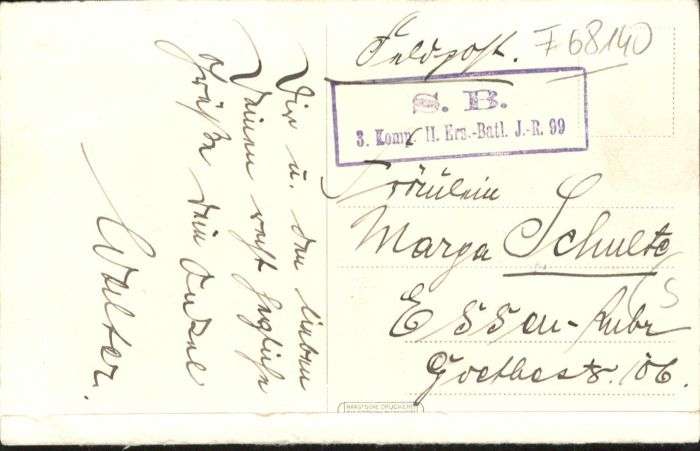 Dir u. den lieben
Deinen recht herzliche
Grüße Dein Onkel
Walter.
Feldpost.
F 68140
S. B.
3. Komp. II. Ers.-Batl. J.-R. 99
Fräulein
Marga Schulte
Essen-Ruhr
Goethestr. 106.